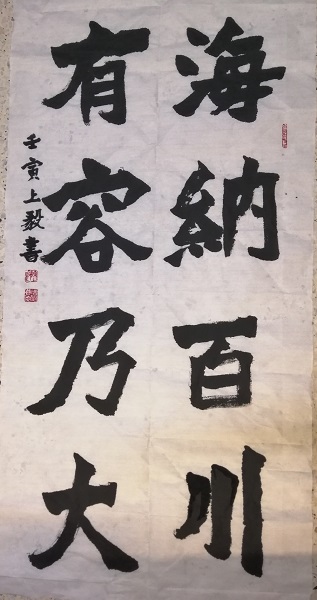 海納百川
有容乃大
壬寅上毅書